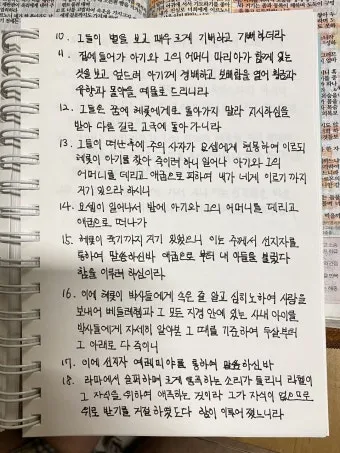 10. 그들이 별을 보고 매우 크게 기뻐하고 기뻐하더라
11. 집에 들어가 아기와 그의 어머니 마리아가 함께 있는
것을 보고 엎드려 아기께 경배하고 보배합을 열어 황금과
유향과 몰약을 예물로 드리니라
12. 그들은 꿈에 헤롯에게로 돌아가지 말라 지시하심을
받아 다른 길로 고국에 돌아 가니라
13. 그들이 떠난후에 주의 사자가 요셉에게 현몽하여 이르되
헤롯이 아기를 찾아 죽이려 하니 일어나 아기와 그의
어머니를 데리고 애굽으로 피하여 내가 네게 이르기 까지
거기 있으라 하시니
14. 요셉이 일어나서 밤에 아기와 그의 어머니를 데리고
애굽으로 떠나가
15. 헤롯이 죽기까지 거기 있었으니 이는 주께서 선지자를
통하여 말씀하신바 애굽으로 부터 내 아들을 불렀다
함을 이루려 하심이라
16. 이에 헤롯이 박사들에게 속은 줄 알고 심히 노하여 사람을
보내어 베들레헴과 그 모든 지경 안에 있는 사내 아이를
박사들에게 자세히 알아본 그 때를 기준하여 두살부터
그 아래로 다 죽이니
17. 이에 선지자 예레미야를 통하여 말씀하신바
18. 라마에서 슬퍼하며 크게 통곡하는 소리가 들리니 라헬이
그 자식을 위하여 애곡하는 것이라 그가 자식이 없으므로
위로 받기를 거절 하였도다 함이 이루어 졌느니라